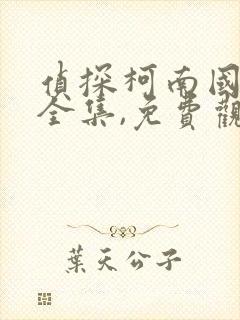 偵探柯南國
全集,免費觀
葉天公子